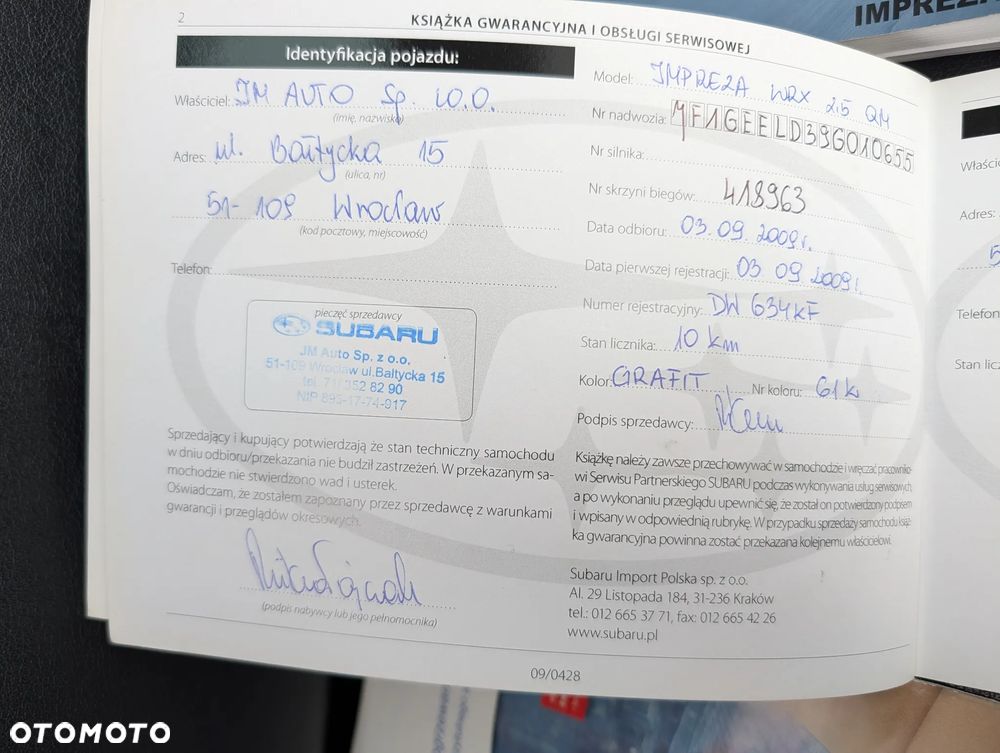 IMPREZA
2
KSIĄŻKA GWARANCYJNA I OBSŁUGI SERWISOWEJ
Identyfikacja pojazdu:
Właściciel: JM AUTO Sp. z o.o.
(imię, nazwisko)
Adres: ul. Bałtycka 15
(ulica, nr)
51-109 Wrocław
(kod pocztowy, miejscowość)
Telefon:
pieczęć sprzedawcy
SUBARU
JM Auto Sp. z o.o.
51-109 Wrocław ul.Bałtycka 15
tel. 71/352 82 90
NIP 895-17-74-917
Sprzedający i kupujący potwierdzają że stan techniczny samochodu
w dniu odbioru/przekazania nie budził zastrzeżeń. W przekazanym sa-
mochodzie nie stwierdzono wad i usterek.
Oświadczam, że zostałem zapoznany przez sprzedawcę z warunkami
gwarancji i przeglądów okresowych.
(podpis nabywcy lub jego pełnomocnika)
Model: IMPREZA WRX 2.5 QM
Nr nadwozia: JF1GEELD39G010655
Nr silnika:
Nr skrzyni biegów: 418963
Data odbioru: 03.09.2009 r.
Data pierwszej rejestracji: 03 09 2009 r.
Numer rejestracyjny: DW 634KF
Stan licznika: 10 km
Kolor: GRAFIT Nr koloru: 61K
Podpis sprzedawcy:
Książkę należy zawsze przechowywać w samochodzie i wręczać pracowniko-
wi Serwisu Partnerskiego SUBARU podczas wykonywania usług serwisowych,
a po wykonaniu przeglądu upewnić się, że został on potwierdzony podpisem
i wpisany w odpowiednią rubrykę. W przypadku sprzedaży samochodu książ-
ka gwarancyjna powinna zostać przekazana kolejnemu właścicielowi.
Subaru Import Polska sp. z o.o.
Al. 29 Listopada 184, 31-236 Kraków
tel.: 012 665 37 71, fax: 012 665 42 26
www.subaru.pl
09/0428
Właści
Adres:
5
Telefon
Stan licz
OTOMOTO